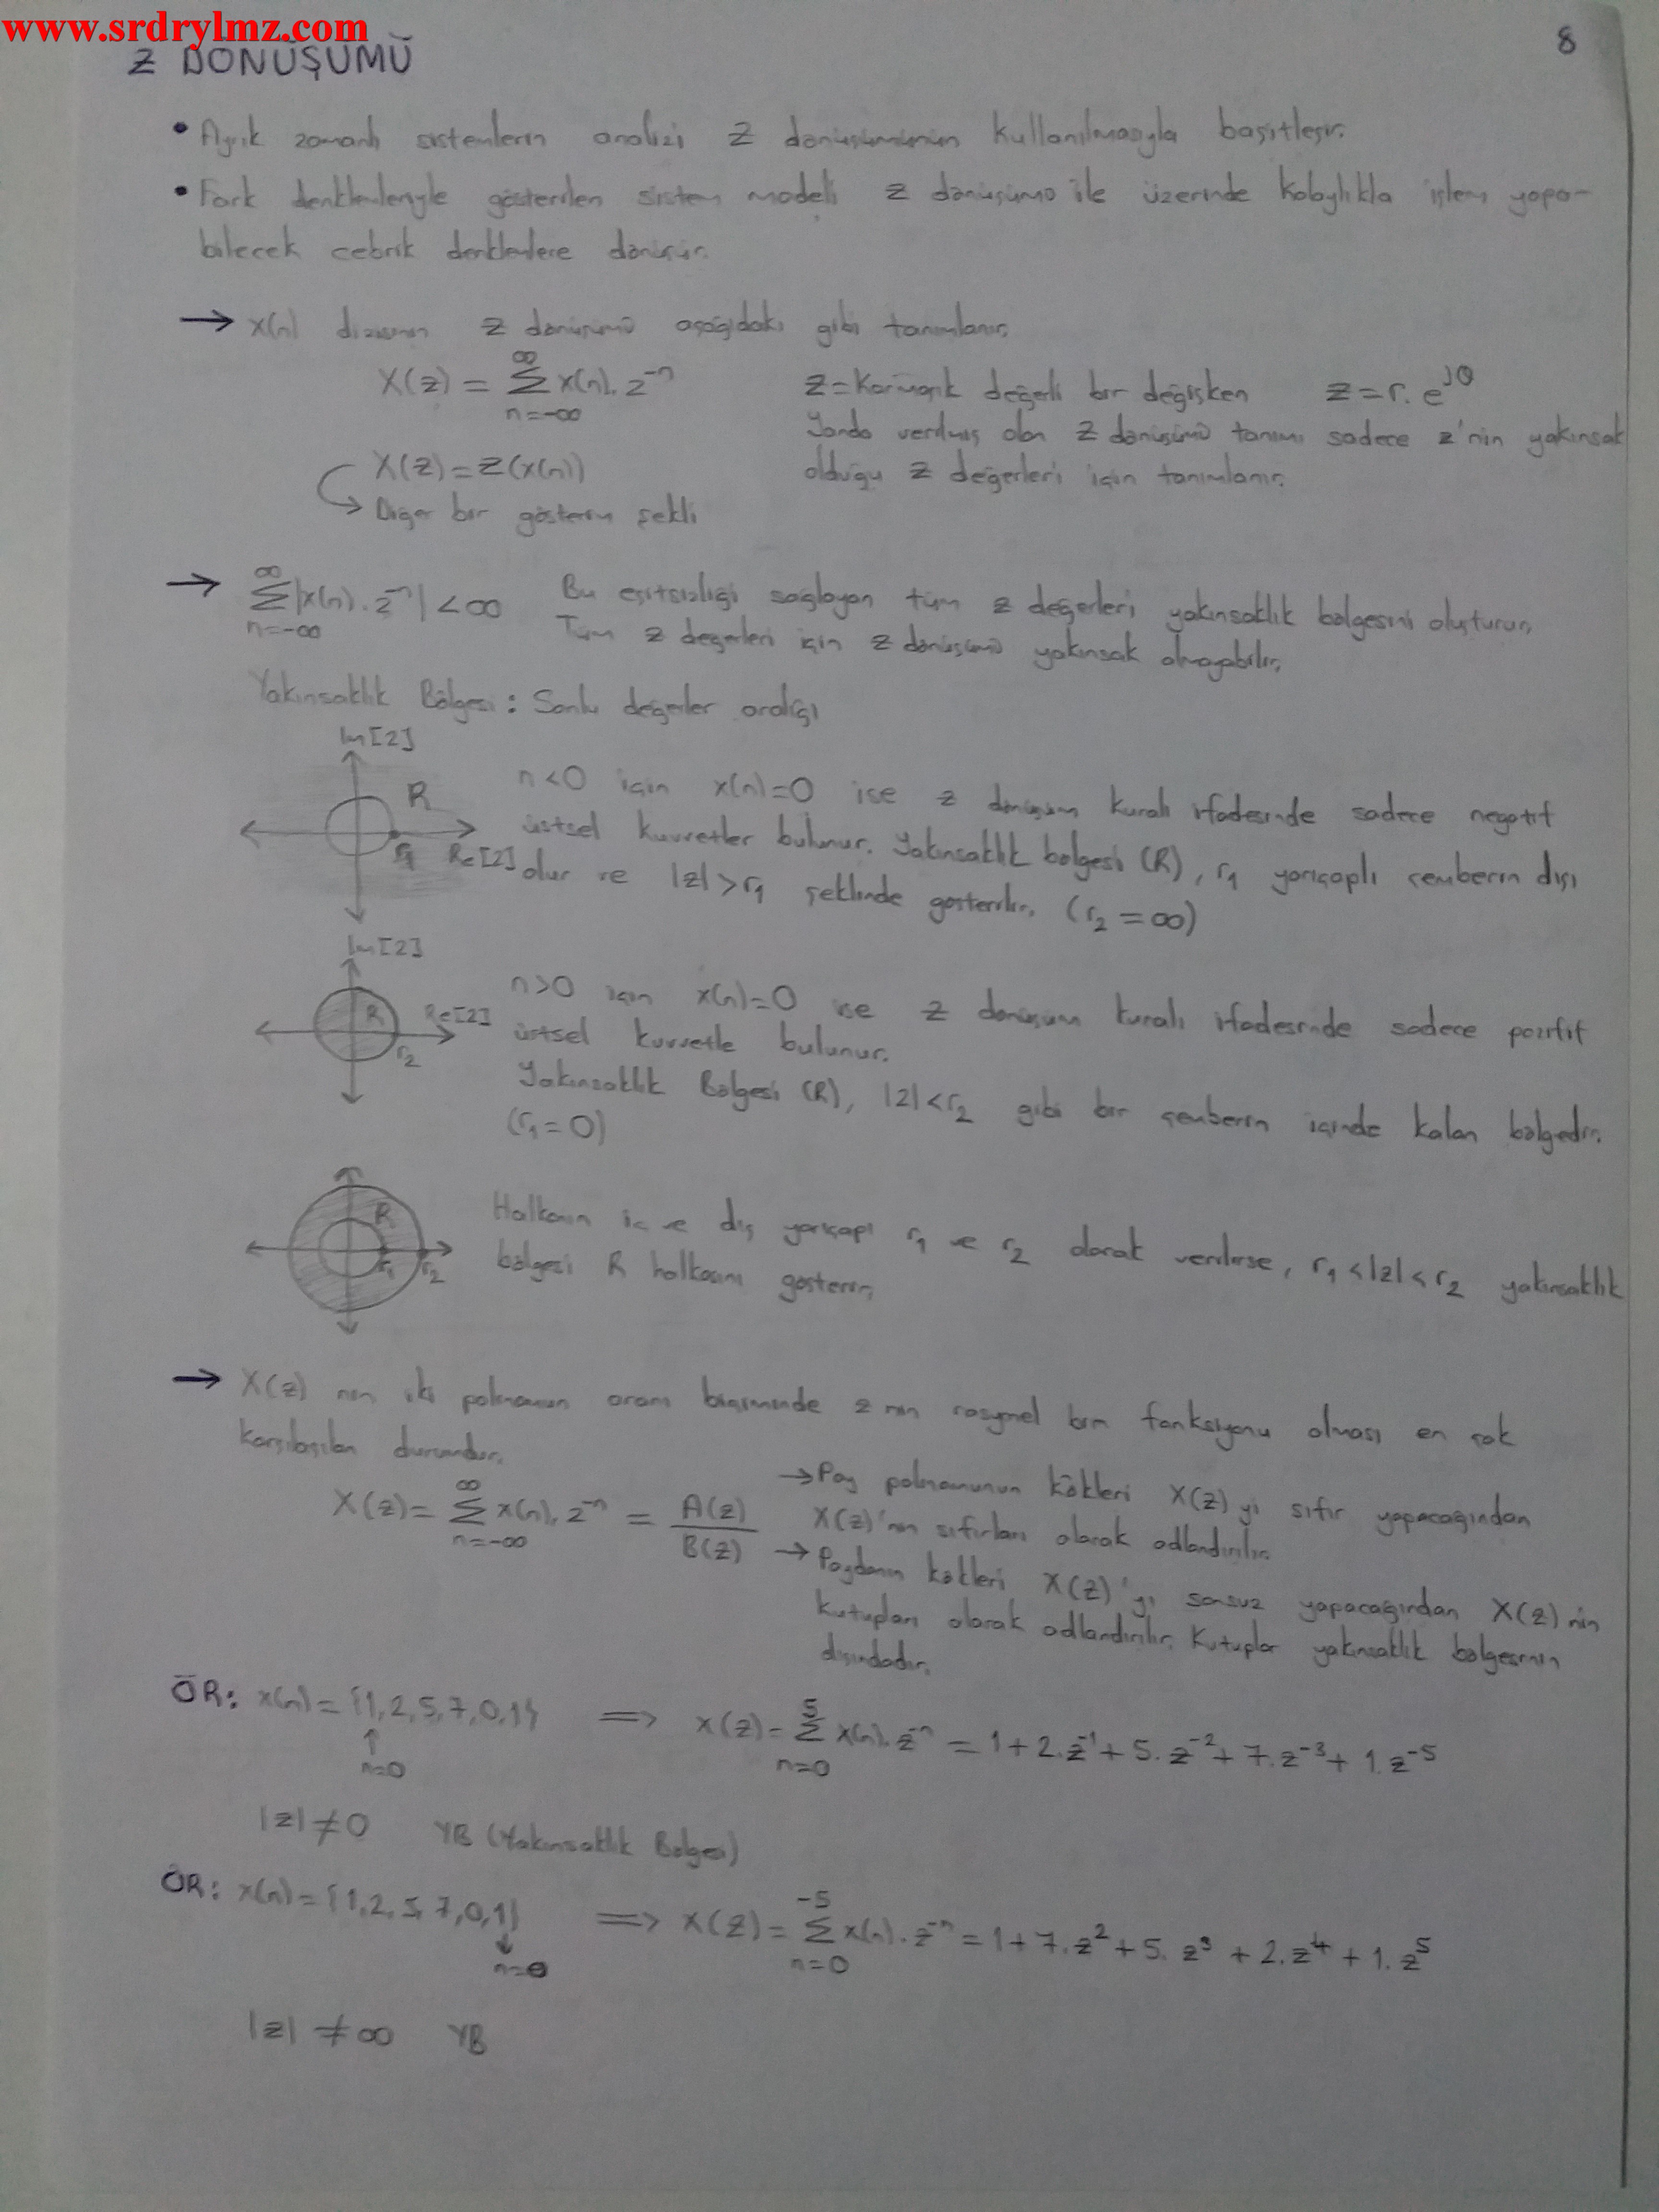 www.srdrylmz.com
8
Z DÖNÜŞÜMÜ
• Ayrık zamanlı sistemlerin analizi Z dönüşümünün kullanılmasıyla basitleşir.
• Fark denklemleriyle gösterilen sistem modeli Z dönüşümü ile üzerinde kolaylıkla işlem yapa-
bilecek cebrik denklemlere dönüşür.
→ x(n) dizisinin Z dönüşümü aşağıdaki gibi tanımlanır.
X(z) = ∞ Σ n=-∞ x(n).z⁻ⁿ z=Karmaşık değerli bir değişken z=r.e^jθ
Yanda verilmiş olan Z dönüşümü tanımı sadece z'nin yakınsak
X(z)=Z(x(n)) olduğu z değerleri için tanımlanır.
↪ Diğer bir gösterim şekli
→ ∞ Σ n=-∞ |x(n).z⁻ⁿ| < ∞ Bu eşitsizliği sağlayan tüm z değerleri yakınsaklık bölgesini oluşturur.
Tüm z değerleri için z dönüşümü yakınsak olmayabilir.
Yakınsaklık Bölgesi: Sonlu değerler aralığı
Im[z]
R
r₁ Re[z]
n<0 için x(n)=0 ise z dönüşüm kuralı ifadesinde sadece negatif
üstsel kuvvetler bulunur. Yakınsaklık bölgesi (R), r₁ yarıçaplı çemberin dışı
olur ve |z|>r₁ şeklinde gösterilir. (r₂=∞)
Im[z]
R Re[z]
r₂
n>0 için x(n)=0 ise z dönüşüm kuralı ifadesinde sadece pozitif
üstsel kuvvetle bulunur.
Yakınsaklık Bölgesi (R), |z|<r₂ gibi bir çemberin içinde kalan bölgedir.
(r₁=0)
R
r₁ r₂
Halkanın iç ve dış yarıçapı r₁ ve r₂ olarak verilirse, r₁<|z|<r₂ yakınsaklık
bölgesi R halkasını gösterir.
→ X(z) nin iki polinomun oranı biçiminde z nin rasyonel bir fonksiyonu olması en çok
karşılaşılan durumdur.
X(z) = ∞ Σ n=-∞ x(n).z⁻ⁿ = A(z)/B(z)
→ Pay polinomunun kökleri X(z) yi sıfır yapacağından
X(z)'nin sıfırları olarak adlandırılır.
→ Paydanın kökleri X(z)'yi sonsuz yapacağından X(z) nin
kutupları olarak adlandırılır. Kutuplar yakınsaklık bölgesinin
dışındadır.
ÖR: x(n)={1,2,5,7,0,1} ⟹ X(z)= 5 Σ n=0 x(n).z⁻ⁿ = 1+2.z⁻¹+5.z⁻²+7.z⁻³+1.z⁻⁵
↑
n=0
|z|≠0 YB (Yakınsaklık Bölgesi)
ÖR: x(n)={1,2,5,7,0,1} ⟹ X(z)= -5 Σ n=0 x(n).z⁻ⁿ = 1+7.z²+5.z³+2.z⁴+1.z⁵
↓
n=0
|z| ≠ ∞ YB